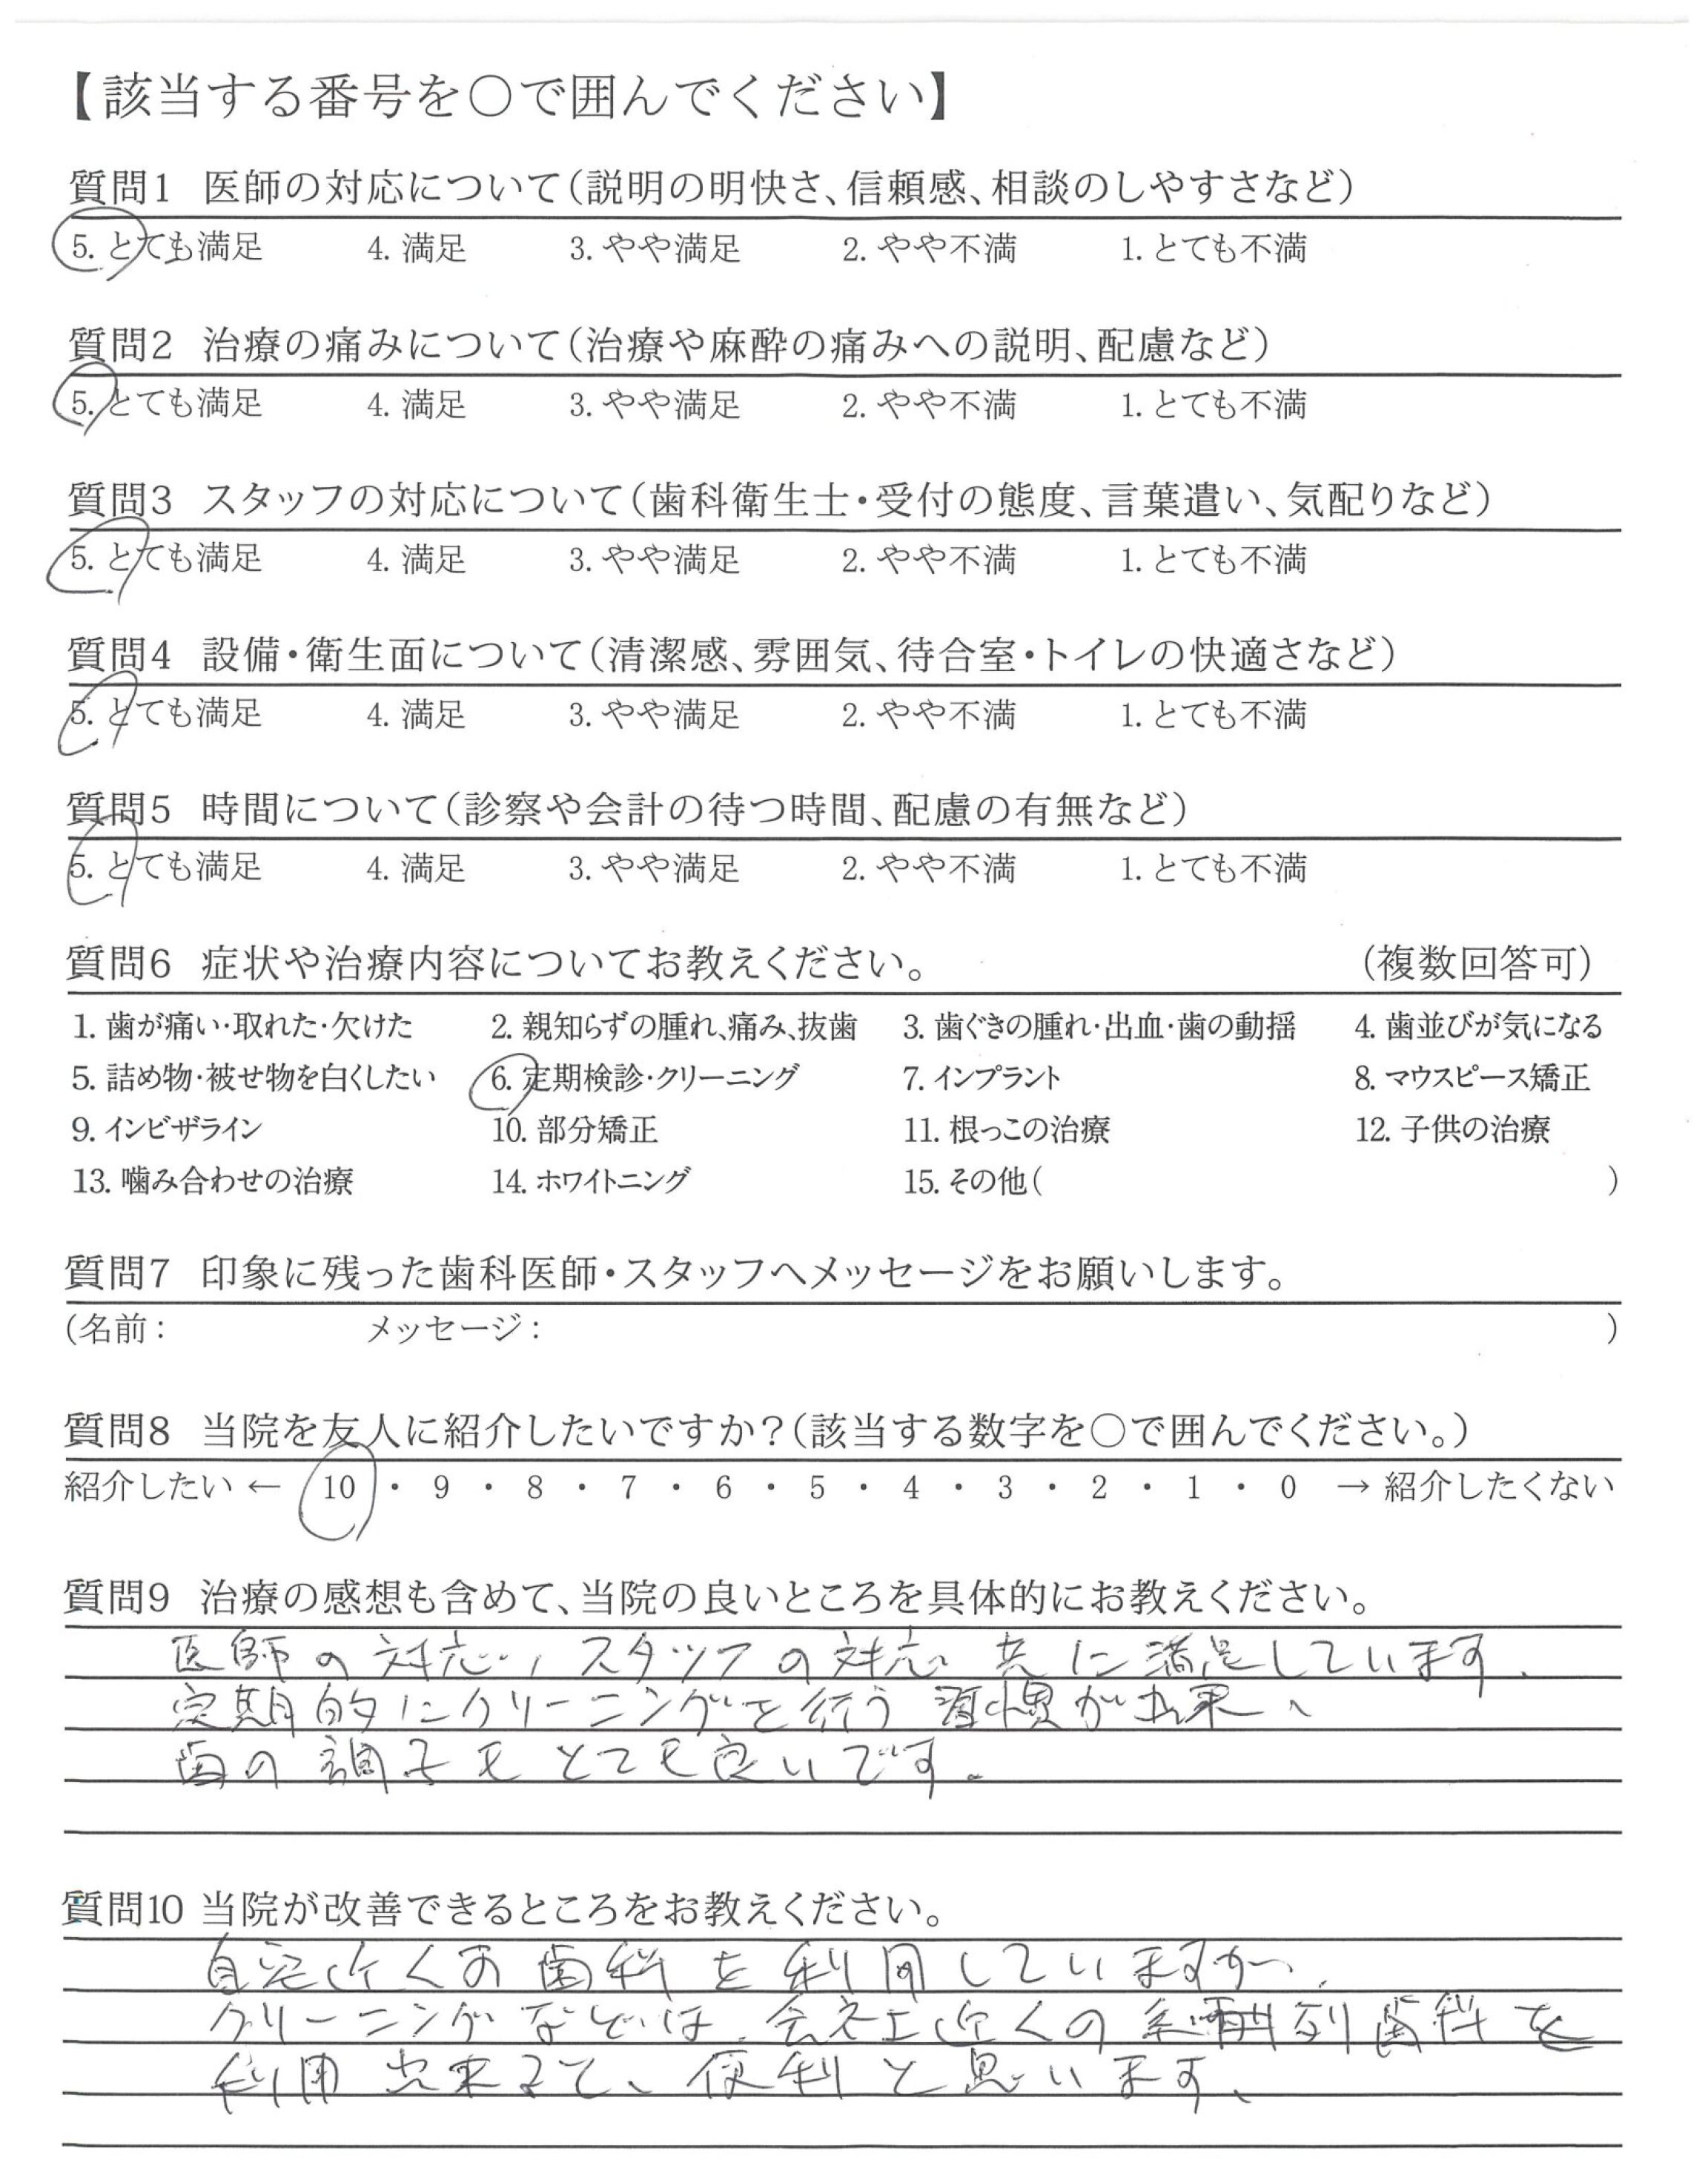 【該当する番号を○で囲んでください】
質問1 医師の対応について(説明の明快さ、信頼感、相談のしやすさなど)
5. とても満足 4. 満足 3. やや満足 2. やや不満 1. とても不満
質問2 治療の痛みについて(治療や麻酔の痛みへの説明、配慮など)
5. とても満足 4. 満足 3. やや満足 2. やや不満 1. とても不満
質問3 スタッフの対応について(歯科衛生士・受付の態度、言葉遣い、気配りなど)
5. とても満足 4. 満足 3. やや満足 2. やや不満 1. とても不満
質問4 設備・衛生面について(清潔感、雰囲気、待合室・トイレの快適さなど)
5. とても満足 4. 満足 3. やや満足 2. やや不満 1. とても不満
質問5 時間について(診察や会計の待つ時間、配慮の有無など)
5. とても満足 4. 満足 3. やや満足 2. やや不満 1. とても不満
質問6 症状や治療内容についてお教えください。 (複数回答可)
1. 歯が痛い・取れた・欠けた 2. 親知らずの腫れ、痛み、抜歯 3. 歯ぐきの腫れ・出血・歯の動揺 4. 歯並びが気になる
5. 詰め物・被せ物を白くしたい 6. 定期検診・クリーニング 7. インプラント 8. マウスピース矯正
9. インビザライン 10. 部分矯正 11. 根っこの治療 12. 子供の治療
13. 噛み合わせの治療 14. ホワイトニング 15. その他( )
質問7 印象に残った歯科医師・スタッフへメッセージをお願いします。
(名前: メッセージ: )
質問8 当院を友人に紹介したいですか?(該当する数字を○で囲んでください。)
紹介したい ← 10 ・ 9 ・ 8 ・ 7 ・ 6 ・ 5 ・ 4 ・ 3 ・ 2 ・ 1 ・ 0 → 紹介したくない
質問9 治療の感想も含めて、当院の良いところを具体的にお教えください。
医師の対応、スタッフの対応 共に満足しています、
定期的にクリーニングを行う習慣が出来、
歯の調子もとても良いです。
質問10 当院が改善できるところをお教えください。
自宅近くの歯科を利用していますが、
クリーニングなどは、会社近くの系列歯科を
利用出来ると、便利と思います、